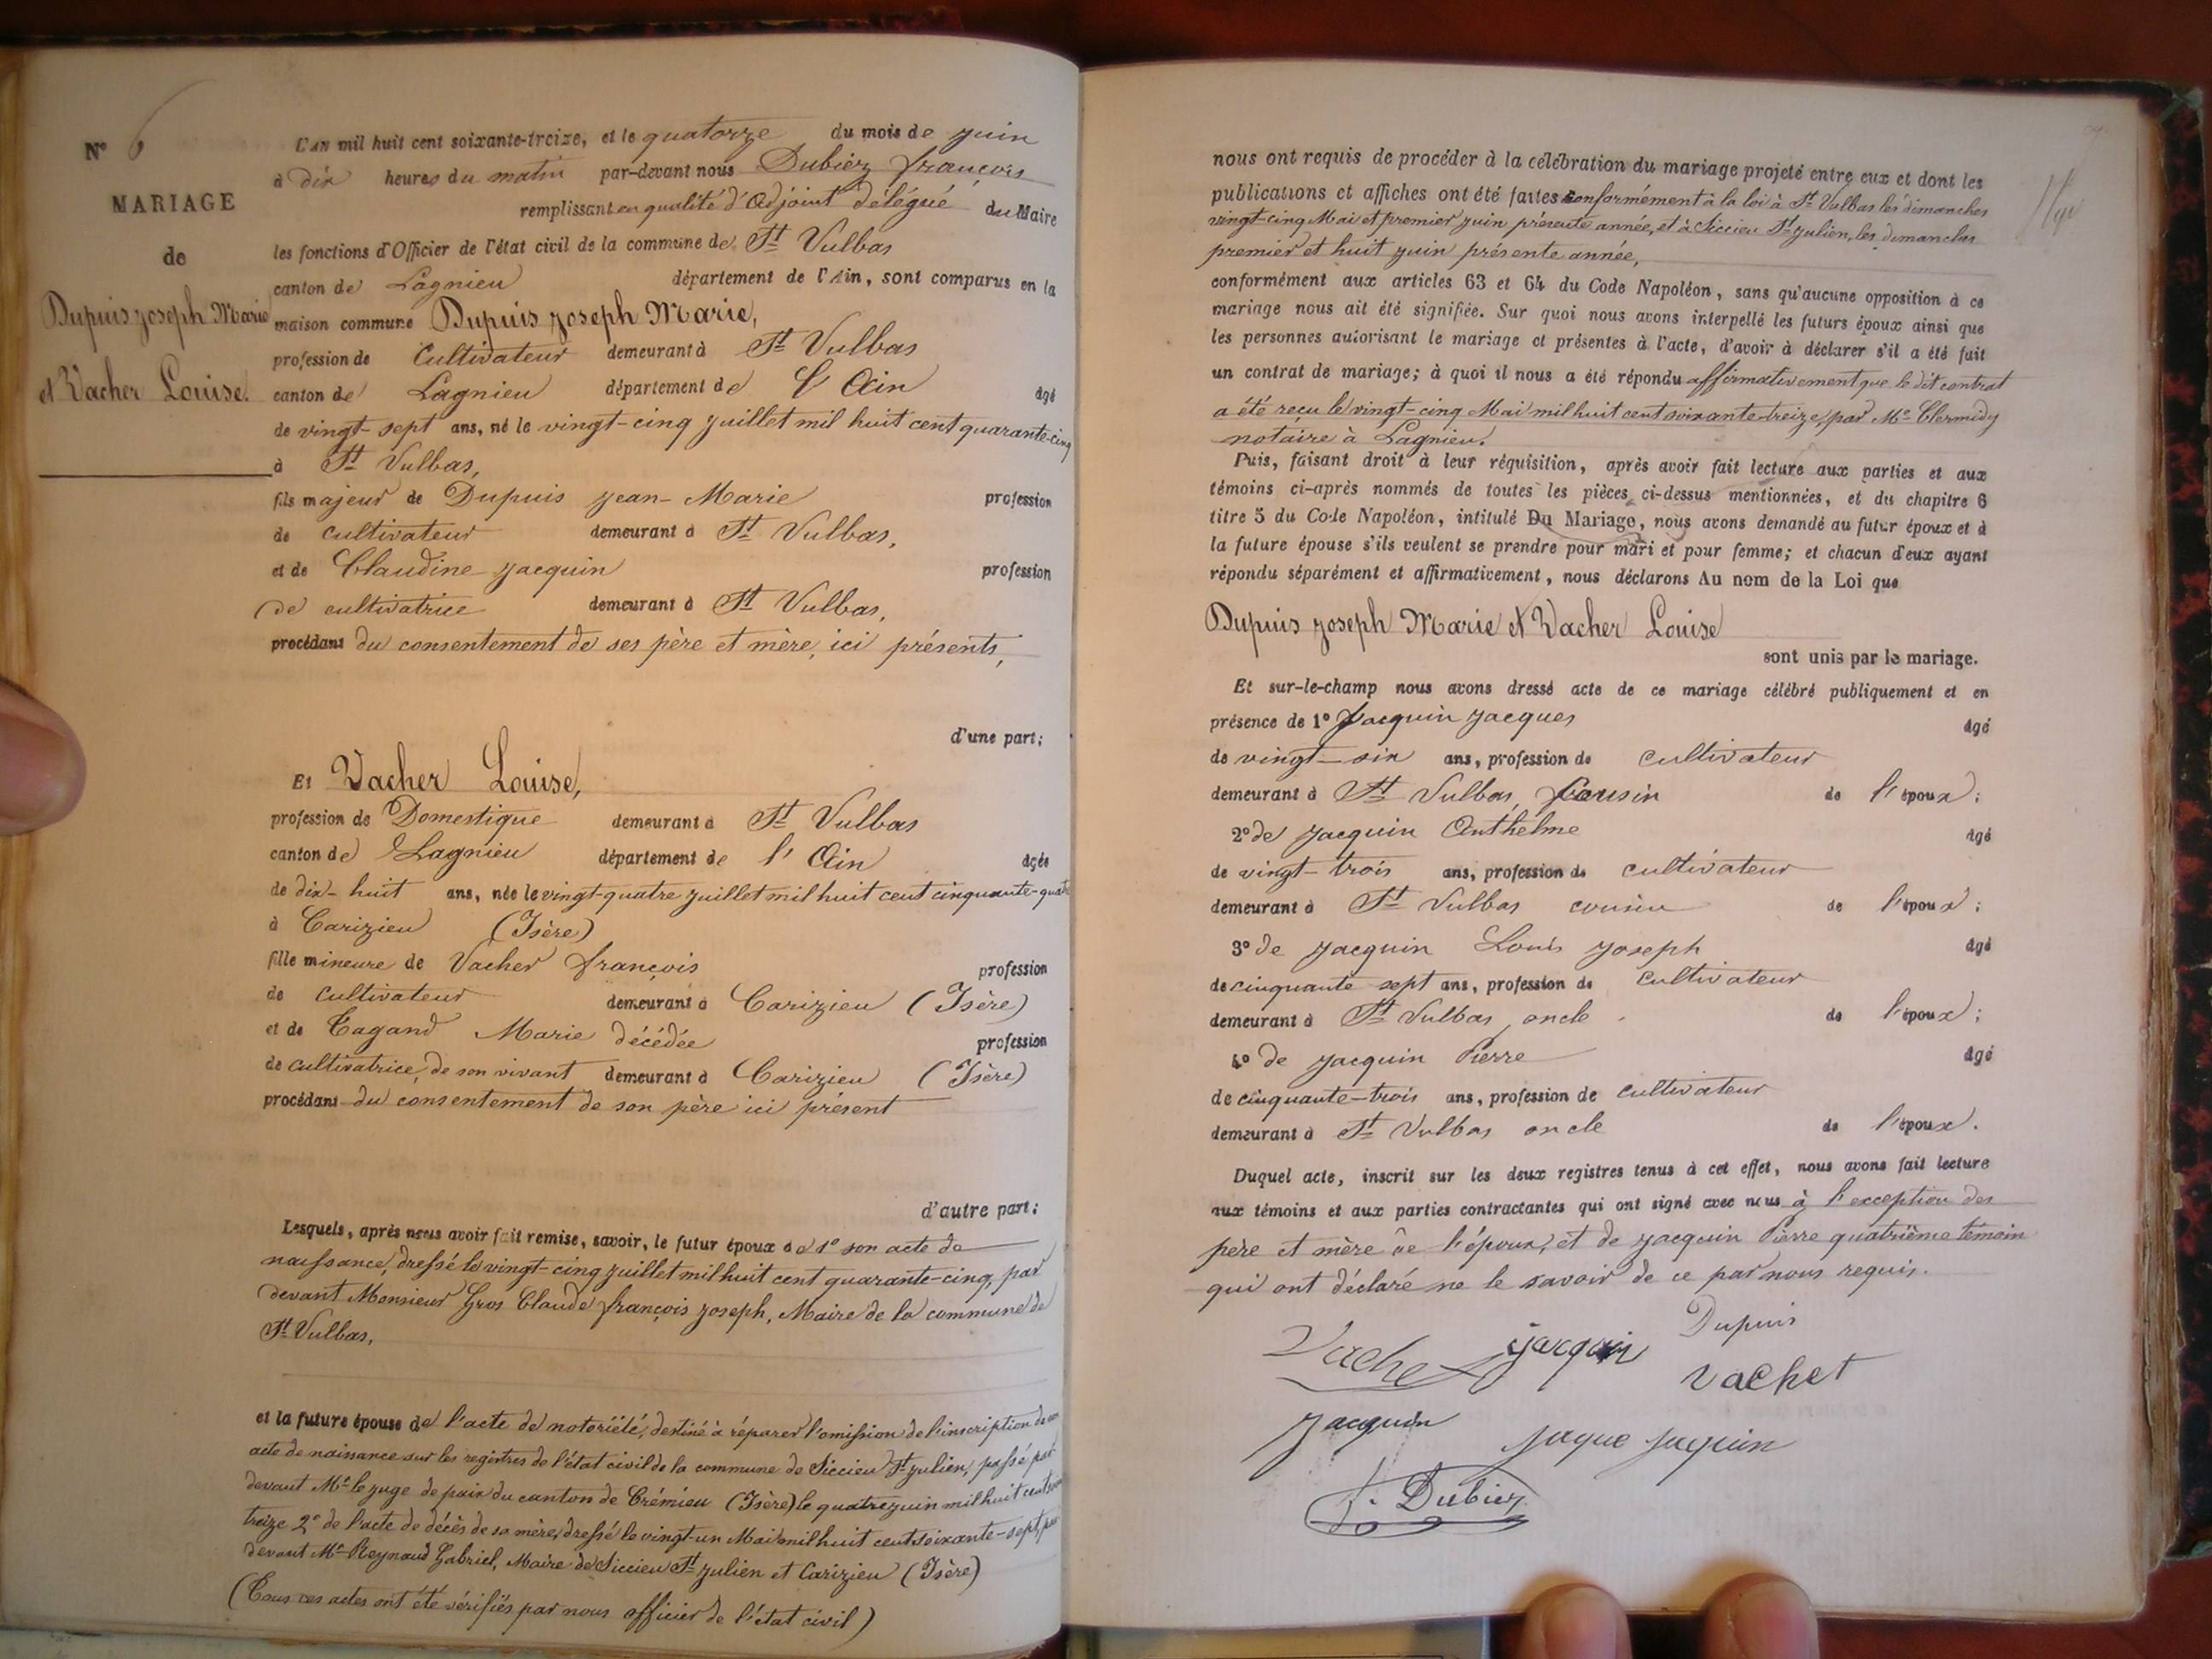 N° 6
MARIAGE
de
Dupuis Joseph Marie
et Vacher Louise.
L'an mil huit cent soixante-treize, et le quatorze du mois de juin
à dix heures du matin par-devant nous Dubiez françois
remplissant en qualité d'Adjoint délégué du Maire
les fonctions d'Officier de l'état civil de la commune de St Vulbas
canton de Lagnieu département de l'Ain, sont comparus en la
maison commune Dupuis Joseph Marie,
profession de Cultivateur demeurant à St Vulbas
canton de Lagnieu département de l'Ain âgé
de vingt-sept ans, né le vingt-cinq juillet mil huit cent quarante-cinq
à St Vulbas,
fils majeur de Dupuis Jean-Marie profession
de cultivateur demeurant à St Vulbas,
et de Claudine Jacquin profession
de cultivatrice demeurant à St Vulbas,
procédant du consentement de ses père et mère, ici présents,
d'une part;
Et Vacher Louise,
profession de Domestique demeurant à St Vulbas
canton de Lagnieu département de l'Ain âgée
de dix-huit ans, née le vingt-quatre juillet mil huit cent cinquante-quatre
à Carizieu (Isère)
fille mineure de Vacher françois profession
de cultivateur demeurant à Carizieu (Isère)
et de Tagand Marie décédée profession
de cultivatrice, de son vivant demeurant à Carizieu (Isère)
procédant du consentement de son père ici présent
d'autre part;
Lesquels, après nous avoir fait remise, savoir, le futur époux de 1° son acte de
naissance, dressé le vingt-cinq juillet mil huit cent quarante-cinq, par
devant Monsieur Gros Claude françois Joseph, Maire de la commune de
St Vulbas,
et la future épouse de l'acte de notoriété, destiné à réparer l'omission de l'inscription de son
acte de naissance sur les registres de l'état civil de la commune de Siccieu St Julien, passé par
devant Mr le juge de paix du canton de Crémieu (Isère) le quatre juin mil huit cent soixante
treize 2° de l'acte de décès de sa mère, dressé le vingt-un Mai mil huit cent soixante-sept, par
devant Mr Reynaud Gabriel, Maire de Siccieu St Julien et Carizieu (Isère)
(Tous ces actes ont été vérifiés par nous officier de l'état civil)
nous ont requis de procéder à la célébration du mariage projeté entre eux et dont les
publications et affiches ont été faites conformément à la loi à St Vulbas les dimanches
vingt-cinq Mai et premier juin présente année, et à Siccieu St Julien, les dimanches
premier et huit juin présente année,
conformément aux articles 63 et 64 du Code Napoléon, sans qu'aucune opposition à ce
mariage nous ait été signifiée. Sur quoi nous avons interpellé les futurs époux ainsi que
les personnes autorisant le mariage et présentes à l'acte, d'avoir à déclarer s'il a été fait
un contrat de mariage; à quoi il nous a été répondu affirmativement que le dit contrat
a été reçu le vingt-cinq Mai mil huit cent soixante-treize, par Me Clermidy
notaire à Lagnieu.
Puis, faisant droit à leur réquisition, après avoir fait lecture aux parties et aux
témoins ci-après nommés de toutes les pièces ci-dessus mentionnées, et du chapitre 6
titre 5 du Code Napoléon, intitulé Du Mariage, nous avons demandé au futur époux et à
la future épouse s'ils veulent se prendre pour mari et pour femme; et chacun d'eux ayant
répondu séparément et affirmativement, nous déclarons Au nom de la Loi que
Dupuis Joseph Marie et Vacher Louise
sont unis par le mariage.
Et sur-le-champ nous avons dressé acte de ce mariage célébré publiquement et en
présence de 1° Jacquin Jacques âgé
de vingt-six ans, profession de cultivateur
demeurant à St Vulbas, Cousin de l'époux;
2° de Jacquin Anthelme âgé
de vingt-trois ans, profession de cultivateur
demeurant à St Vulbas cousin de l'époux;
3° de Jacquin Louis Joseph âgé
de cinquante sept ans, profession de cultivateur
demeurant à St Vulbas, oncle de l'époux;
4° de Jacquin Pierre âgé
de cinquante-trois ans, profession de cultivateur
demeurant à St Vulbas oncle de l'époux.
Duquel acte, inscrit sur les deux registres tenus à cet effet, nous avons fait lecture
aux témoins et aux parties contractantes qui ont signé avec nous à l'exception des
père et mère de l'époux, et de Jacquin Pierre quatrième témoin
qui ont déclaré ne le savoir de ce par nous requis.
Dupuis
Vache Jacquin
Vachet
Jacquin Jaque Jaquin
f. Dubiez